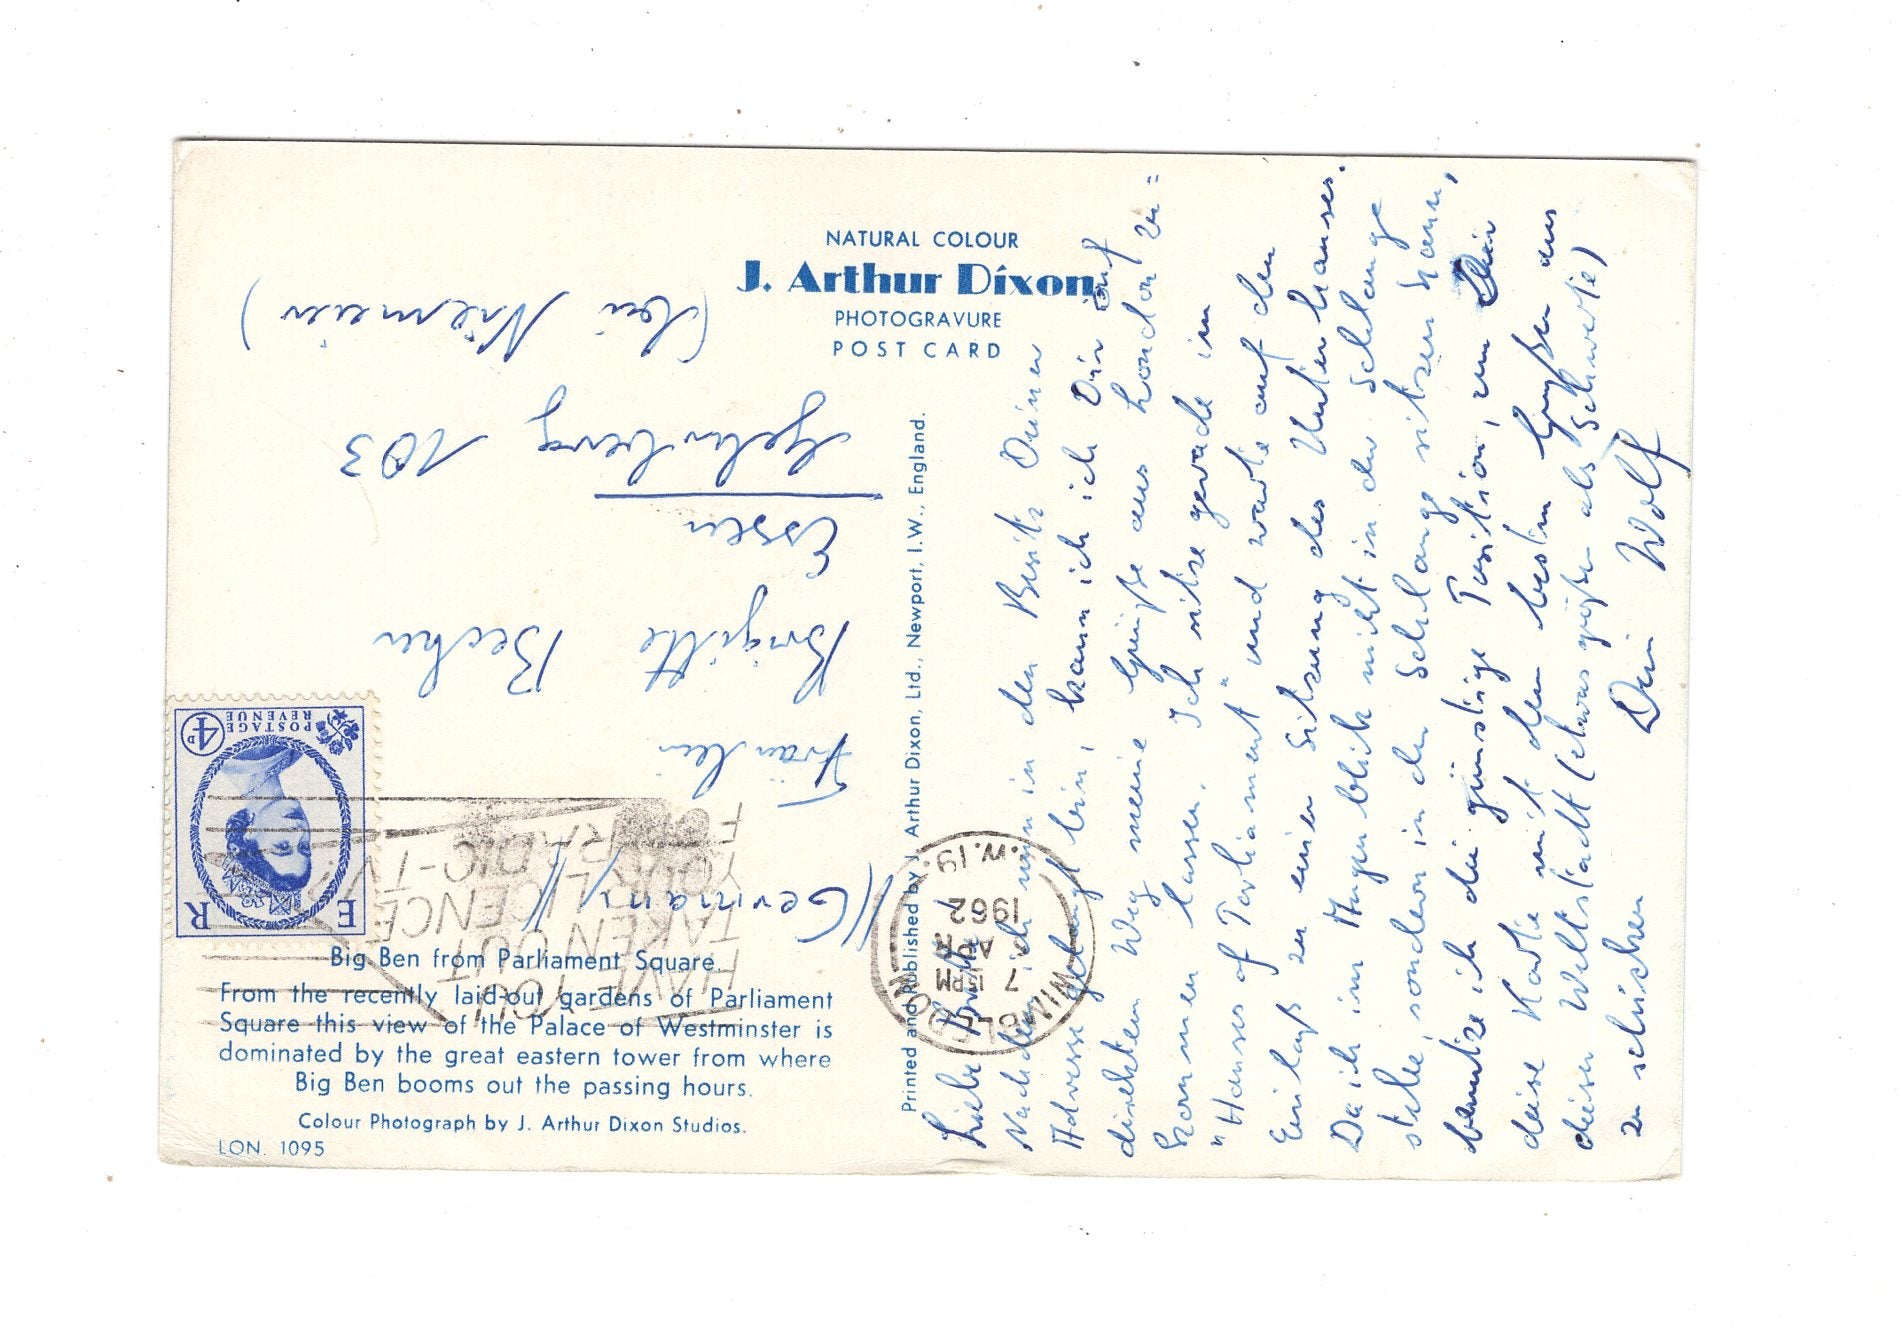 NATURAL COLOUR
J. Arthur Dixon
PHOTOGRAVURE
POST CARD
Printed and Published by J. Arthur Dixon, Ltd., Newport, I.W., England.
Big Ben from Parliament Square
From the recently laid-out gardens of Parliament
Square this view of the Palace of Westminster is
dominated by the great eastern tower from where
Big Ben booms out the passing hours.
Colour Photograph by J. Arthur Dixon Studios.
LON. 1095
E R
POSTAGE
REVENUE
4D
WIMBLEDON
7 15 PM
APR
1962
S.W.19.
HAVE YOU
TAKEN OUT
YOUR LICENCE
FOR RADIO-TV
//(Germany)//
Fräulein
Brigitte Becker
Essen
103
(bei Niemeier)
Liebe Brigitte,
Nachdem ich nun in den Besitz Deiner
Adresse gelangt bin, kann ich Dir auf
direktem Weg meine Grüße aus London zu=
kommen lassen. Ich sitze gerade im
"Houses of Parliament" und warte auf den
Einlaß zu einer Sitzung des Unterhauses.
Da ich im Augenblick nicht in der Schlange
stehe, sondern in der Schlange sitzen kann,
benutze ich die günstige Position, um Dir
diese Karte mit den besten Grüßen aus
dieser Weltstadt (etwas größer als Schwerte)
zu schicken
Dein Wolf